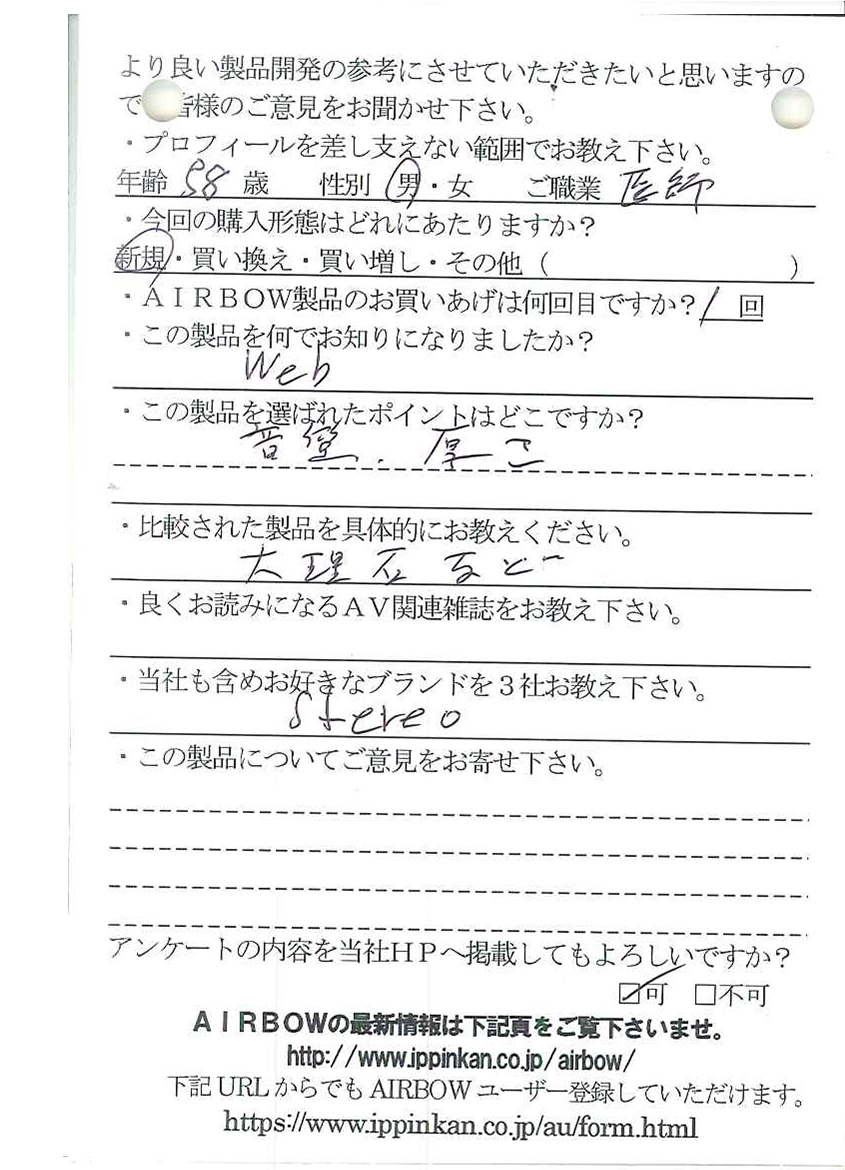 より良い製品開発の参考にさせていただきたいと思いますの
で 皆様のご意見をお聞かせ下さい。
・プロフィールを差し支えない範囲でお教え下さい。
年齢 58 歳 性別 男・女 ご職業 医師
・今回の購入形態はどれにあたりますか?
新規・買い換え・買い増し・その他 ( )
・AIRBOW製品のお買いあげは何回目ですか? 1 回
・この製品を何でお知りになりましたか?
Web
・この製品を選ばれたポイントはどこですか?
厚さ
・比較された製品を具体的にお教えください。
大理石など
・良くお読みになるAV関連雑誌をお教え下さい。
・当社も含めお好きなブランドを3社お教え下さい。
Stereo
・この製品についてご意見をお寄せ下さい。
アンケートの内容を当社HPへ掲載してもよろしいですか?
☑可 □不可
AIRBOWの最新情報は下記頁をご覧下さいませ。
http://www.ippinkan.co.jp/airbow/
下記 URL からでも AIRBOW ユーザー登録していただけます。
https://www.ippinkan.co.jp/au/form.html